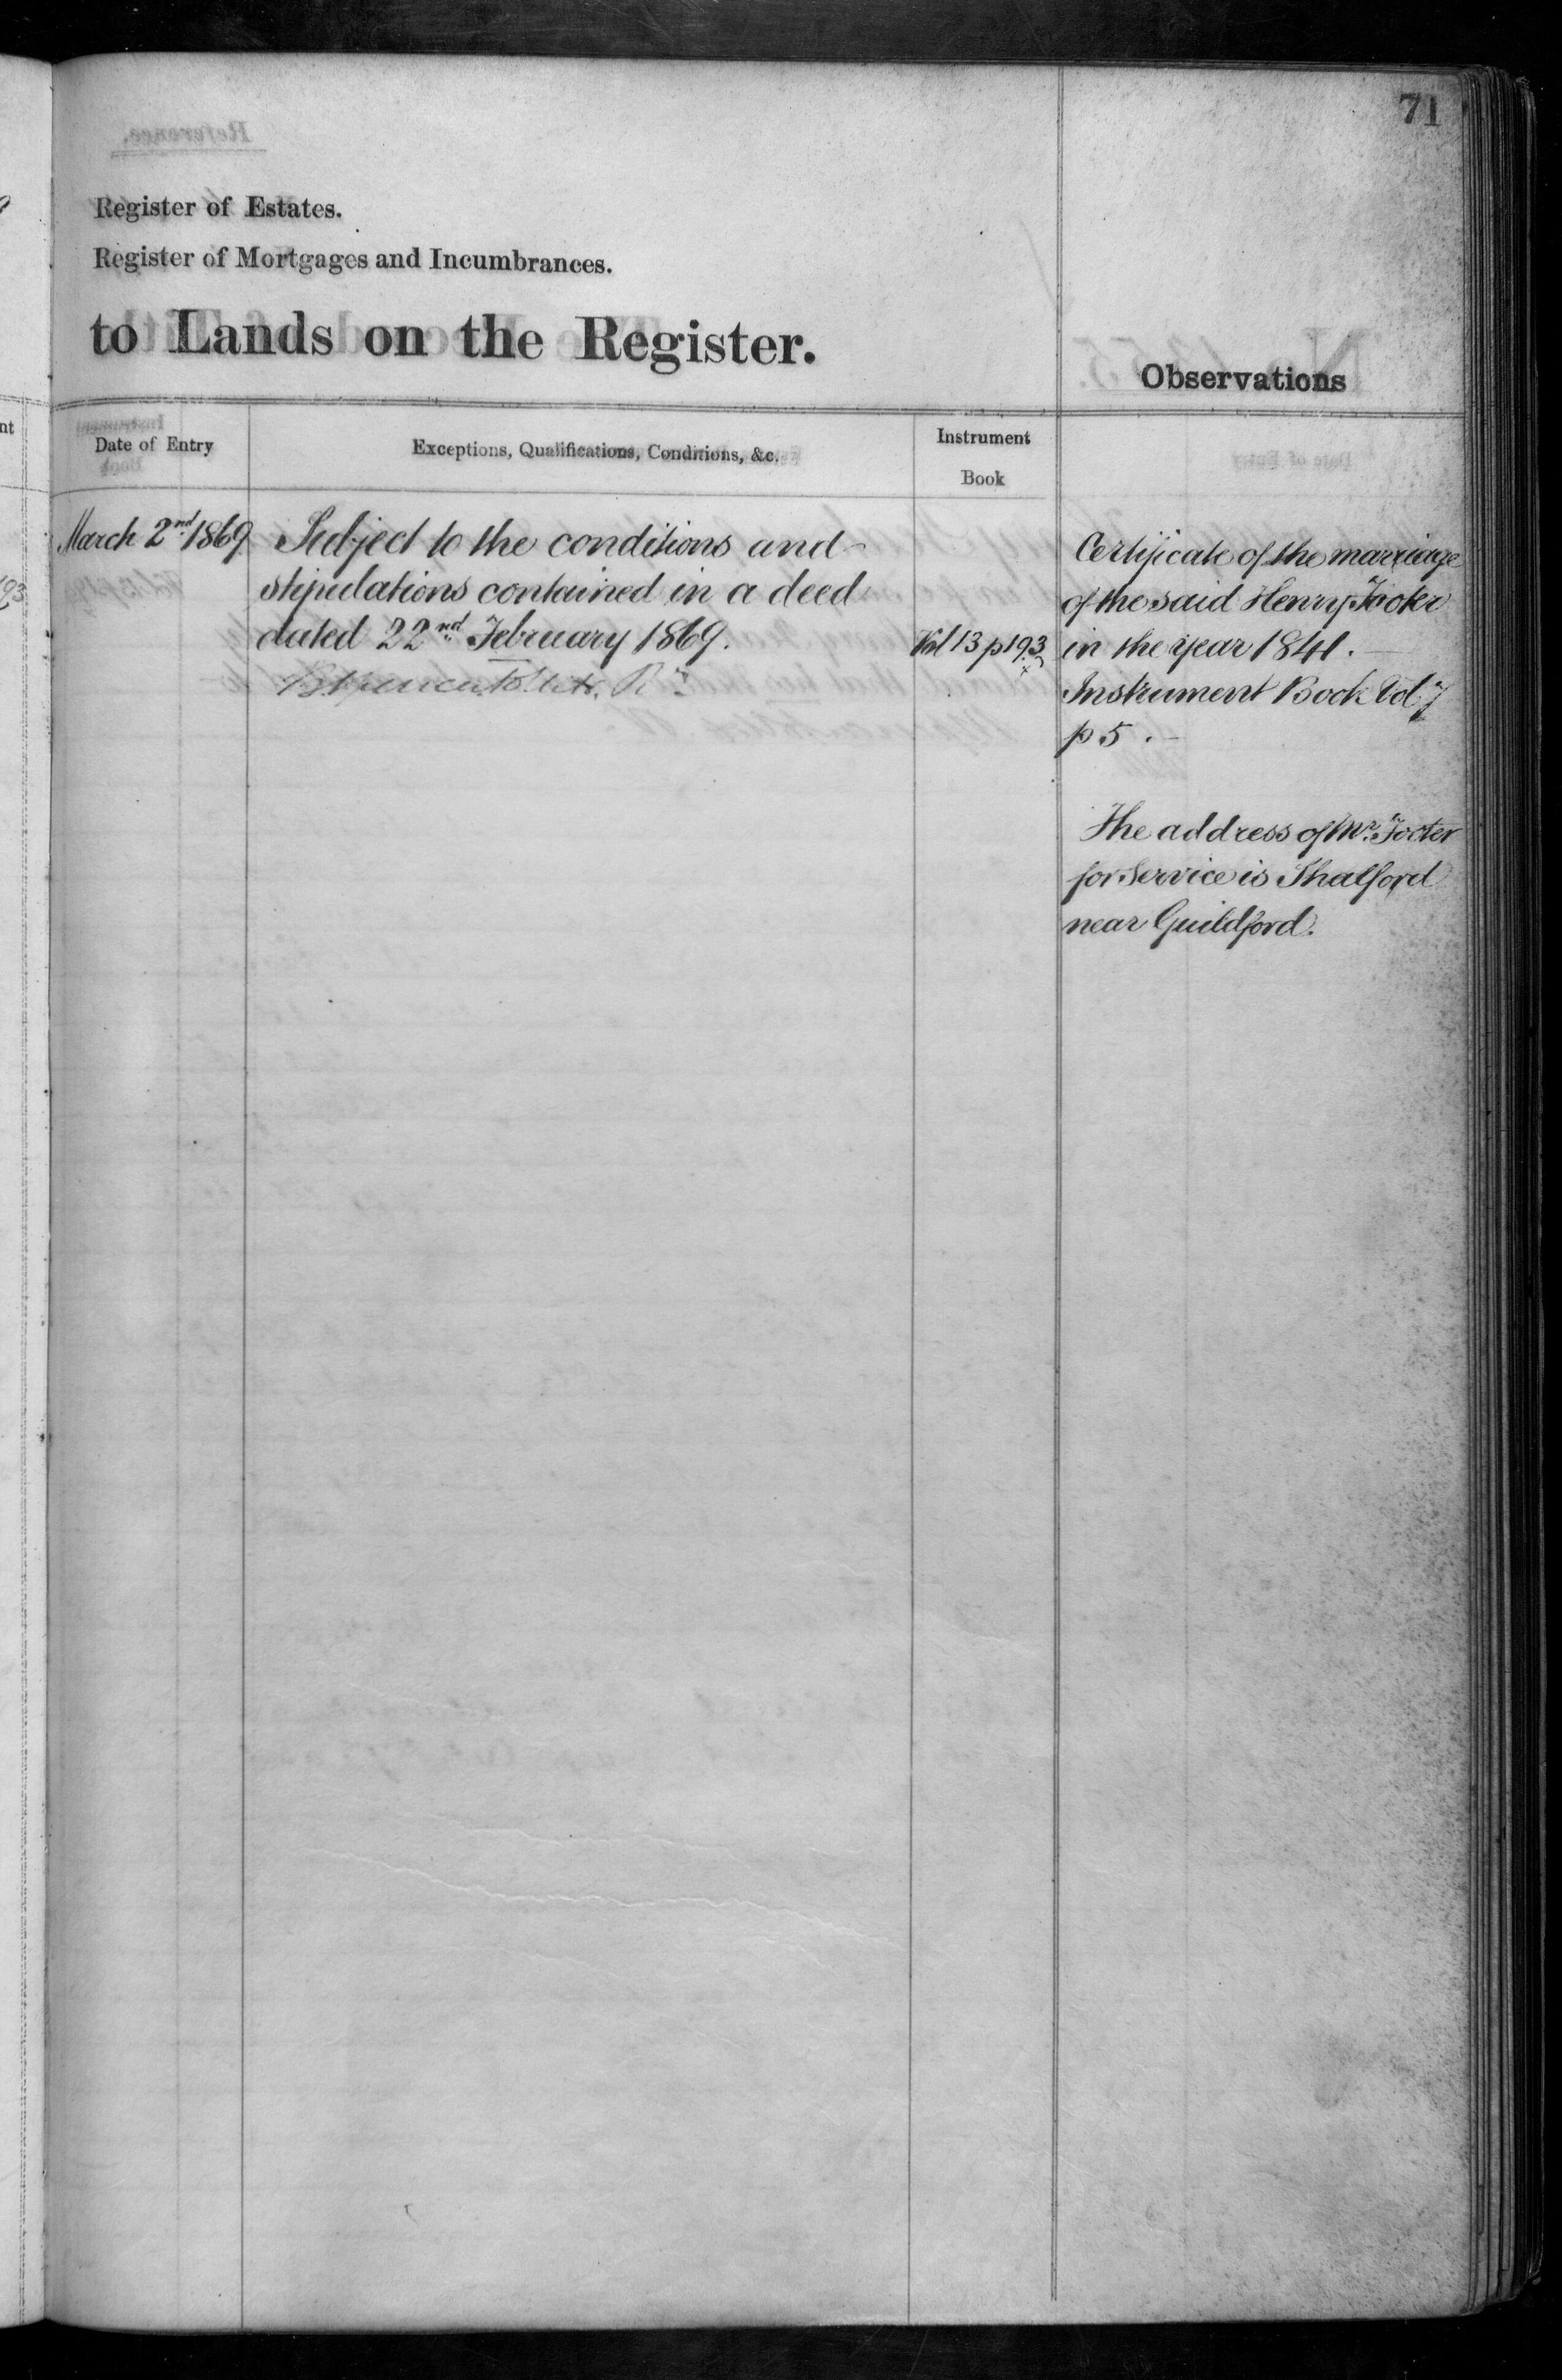 71
Register of Estates.
Register of Mortgages and Incumbrances.
to Lands on the Register.
Observations
Date of Entry
Exceptions, Qualifications, Conditions, &c.
Instrument
Book
March 2nd 1869
Subject to the conditions and
stipulations contained in a deed
dated 22nd February 1869.
Vol 13 p 193
Certificate of the marriage
of the said Henry
in the year 1841.
Instrument Book Vol 7
p 5.
The address of Mr.
for Service is Shalford
near Guildford.